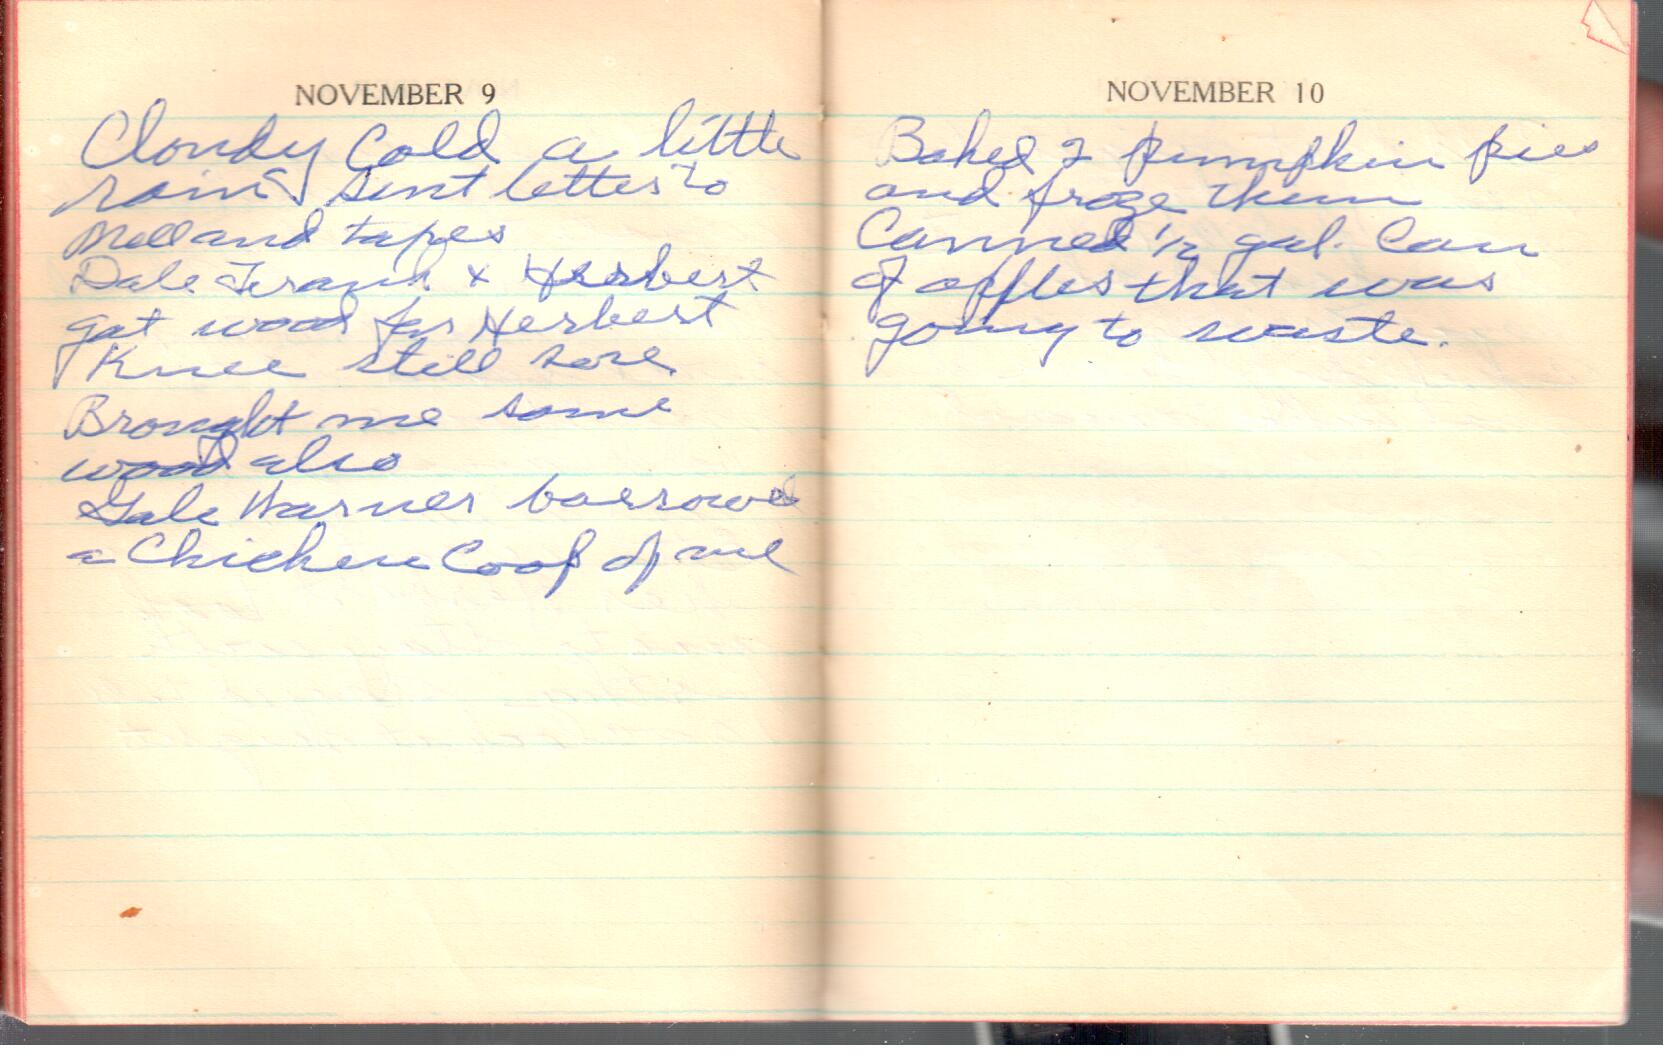 NOVEMBER 9
Cloudy Cold a little
rain sent letter to
Nell and tapes
Dale Frank & Herbert
got wood for Herbert
Knee still sore
Brought me some
wood also
Gale Warner borrowed
a Chicken Coop of me
NOVEMBER 10
Baked 2 pumpkin pies
and froze them
Canned 1/2 gal. Can
of apples that was
going to waste.